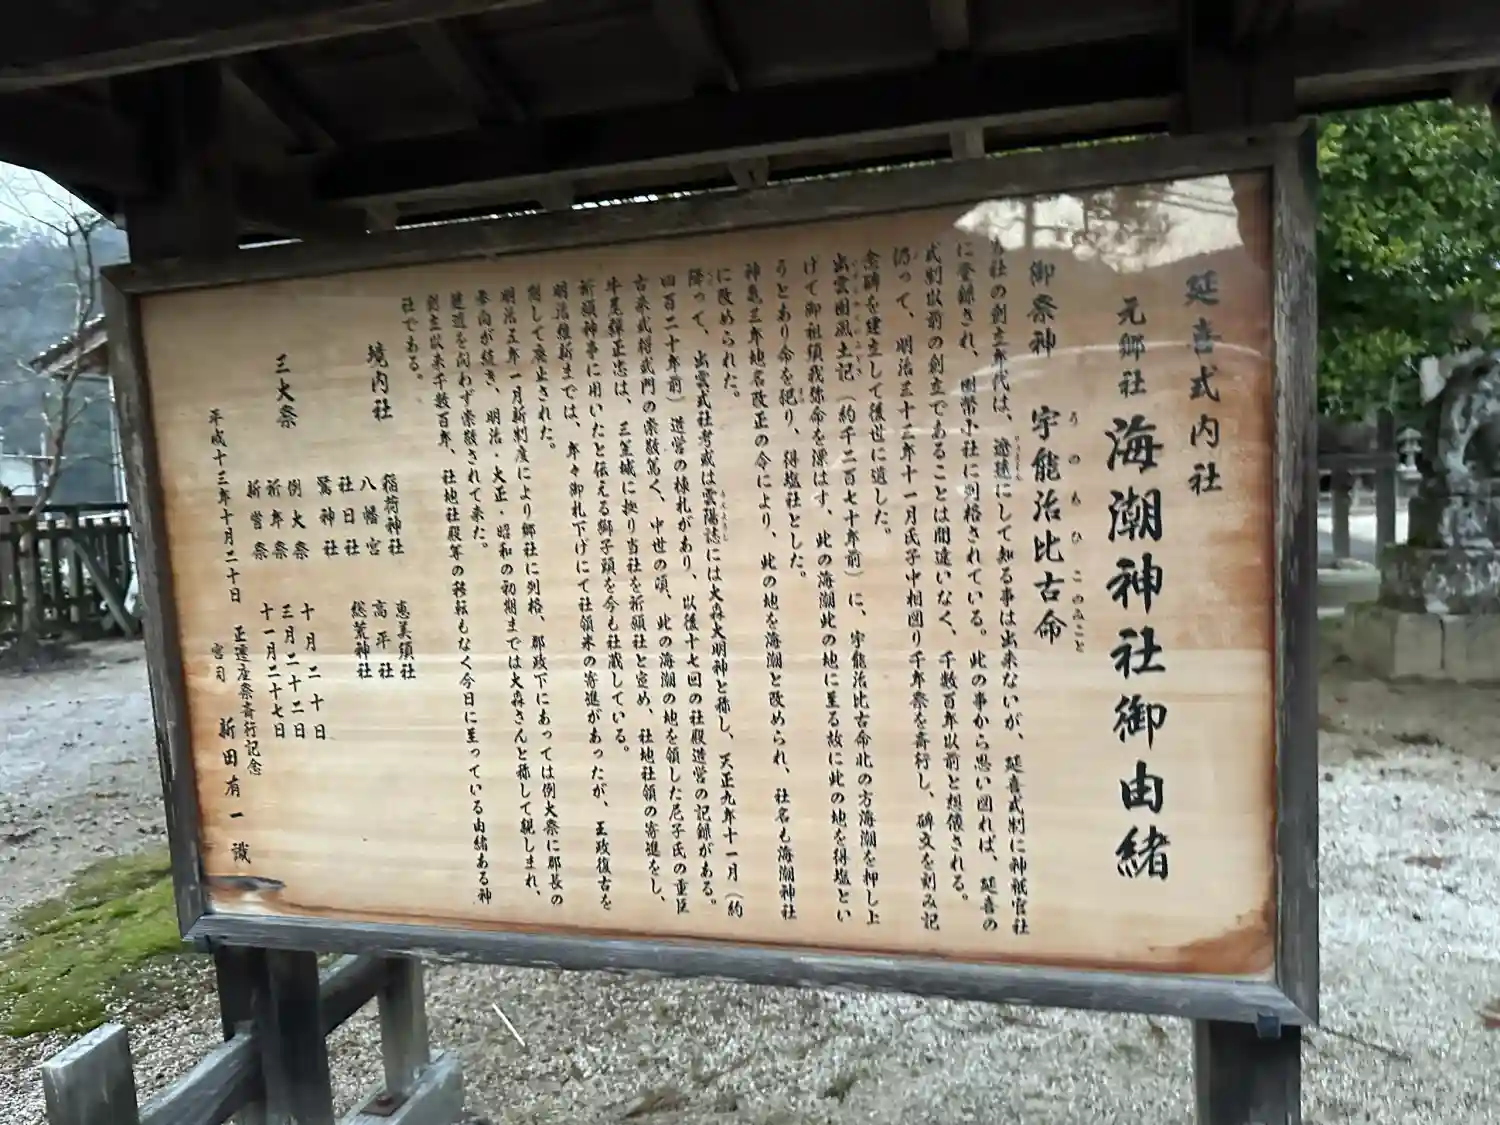 延喜式内社
元郷社 海潮神社御由緒
御祭神 宇能治比古命
うのちひこのみこと
当社の創立年代は、遼遠にして知る事は出来ないが、延喜式制に神祇官社
に登録され、国幣小社に列格されている。此の事から思い図れば、延喜の
式制以前の創立であることは間違いなく、千数百年以前と想像される。
仍って、明治三十三年十一月氏子中相図り千年祭を斎行し、碑文を刻み記
念碑を建立して後世に遺した。
出雲国風土記(約千二百七十年前)に、宇能治比古命北の方海潮を押し上
げて御祖須我弥命を漂はす、此の海潮此の地に至る故に此の地を得塩とい
うとあり命を祀り、得塩社とした。
神亀三年地名改正の令により、此の地を海潮と改められ、社名も海潮神社
に改められた。
降って、出雲式社考或は雲陽誌には大森大明神と称し、天正九年十一月(約
四百二十年前)造営の棟札があり、以後十七回の社殿造営の記録がある。
古来武将武門の崇敬篤く、中世の頃、此の海潮の地を領した尼子氏の重臣
牛尾弾正忠は、三笠城に拠り当社を祈願社と定め、社地社領の寄進をし、
祈願神事に用いたと伝える獅子頭を今も社蔵している。
明治維新までは、年々御札下げにて社領米の寄進があったが、王政復古を
期して廃止された。
明治五年一月新制度により郷社に列格、郡政下にあっては例大祭に郡長の
参向が続き、明治・大正・昭和の初期までは大森さんと称して親しまれ、
遠近を問わず崇敬されて来た。
創立以来千数百年、社地社殿等の移転もなく今日に至っている由緒ある神
社である。
境内社 稲荷神社 恵美須社
八幡宮 高平社
社日社 総荒神社
鷺神社
三大祭 例大祭 十月二十日
祈年祭 三月二十二日
新嘗祭 十一月二十七日
平成十三年十月二十日 正遷座祭斎行記念
宮司 新田有一 識